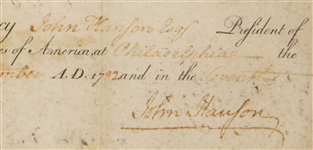 cy John Hanson Esqr President of
es of America, at Philadelphia the
ember A.D. 1782 and in the Seventh
John Hanson